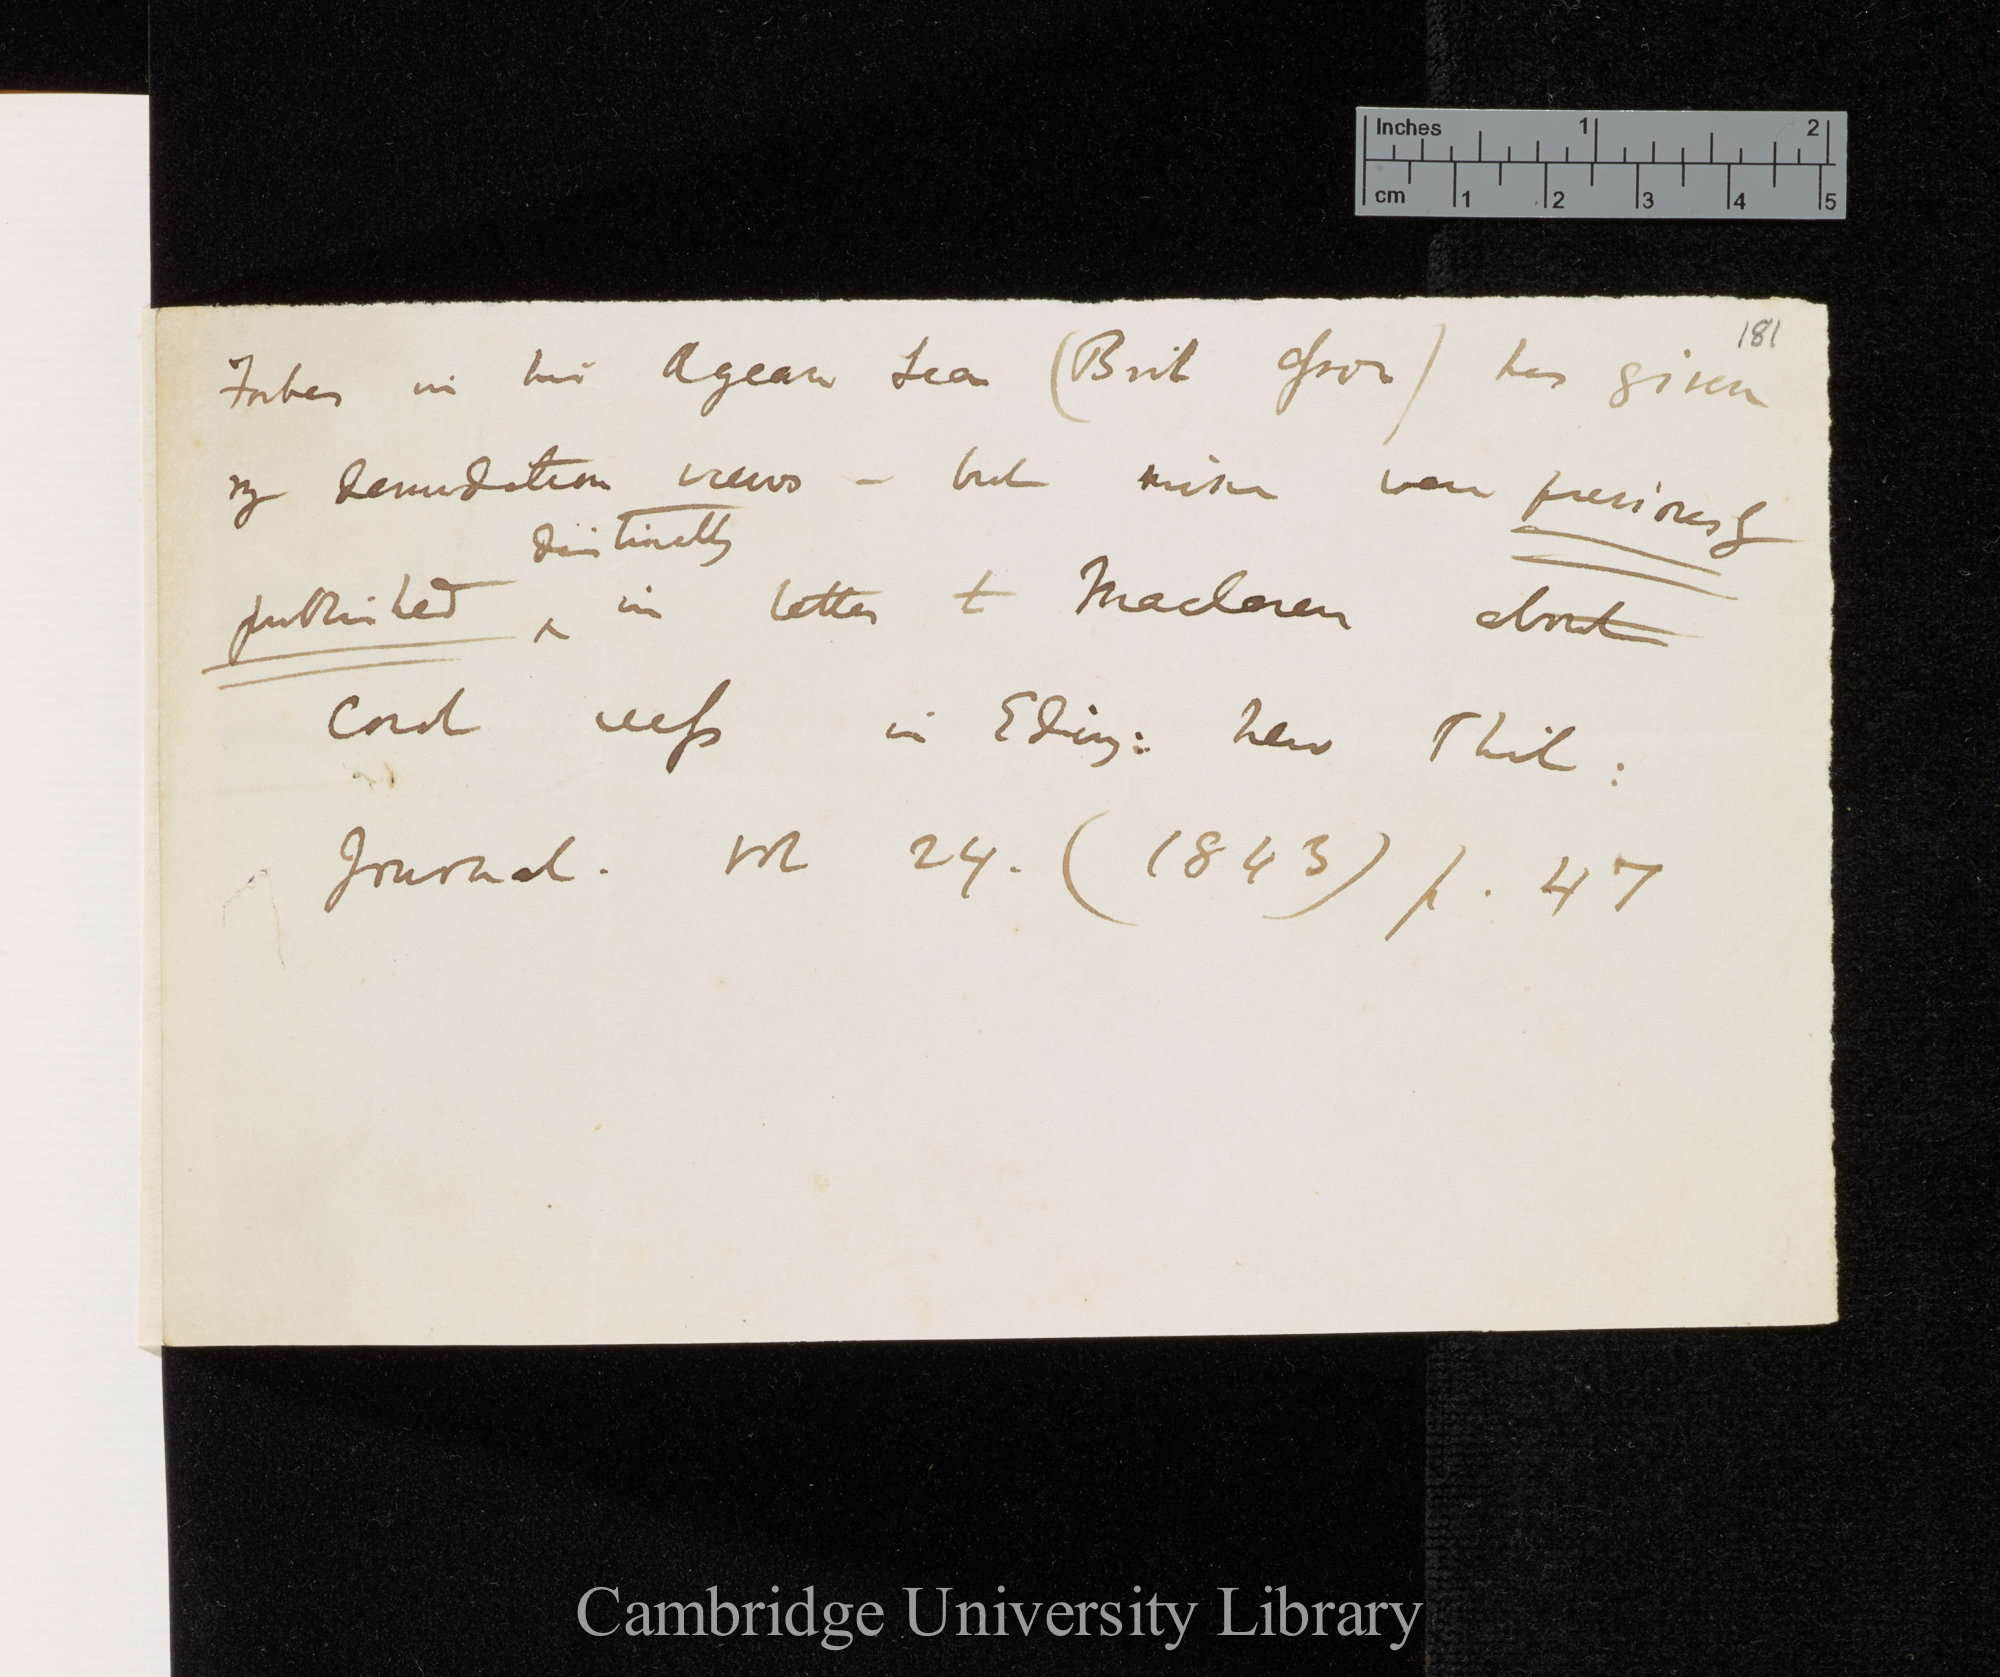 Inches 1 2
cm 1 2 3 4 5
181
Forbes in his Agean Sea (Brit Assoc) has given
my denudation views – but mine were previously
distinctly
published ^ in letter to Maclaren about
Coral reefs in Eding: New Phil:
Journal. vol 24. (1843) p. 47
Cambridge University Library